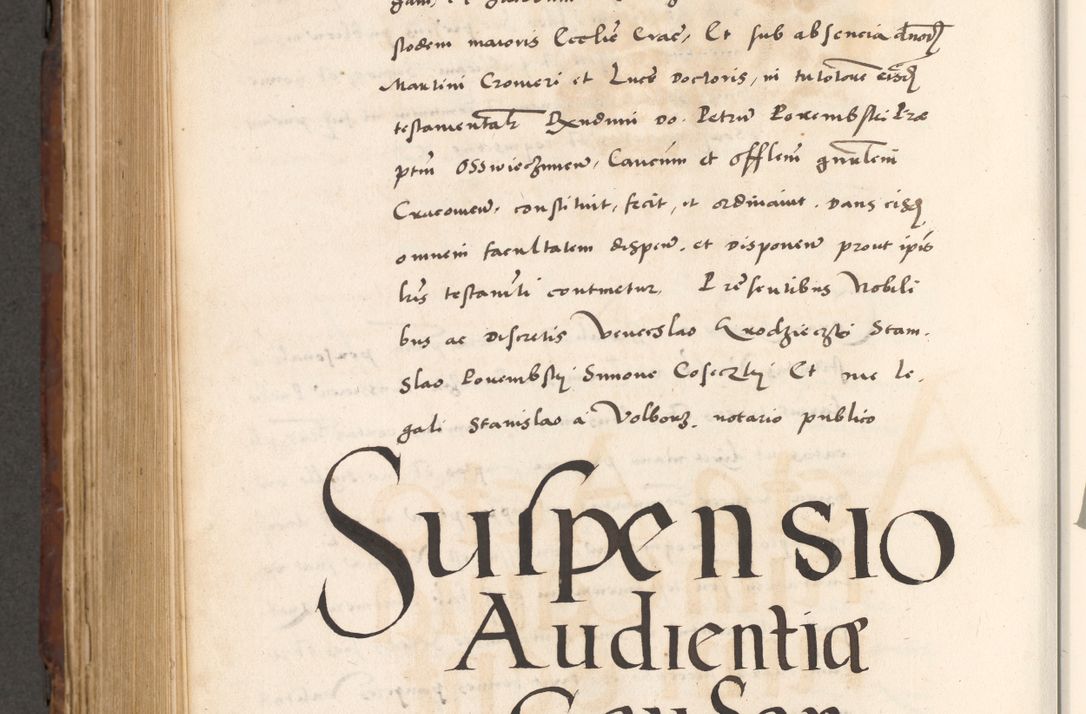 stodem maioris Ecclie Crac, Et sub absencia dnorum
Martini Cromeri et Luce Doctoris, in tutore eisdem
testamentali Rxndum do. Petrum Porembski Prae
ptm Osswieczimen, Cancum et offlem gnralem
Cracovien, constituit, fecit, et ordinavit. Dans eisdem
omnem facultatem dispen, et disponen prout ipsis
lris testamti continetur, Presentibus Nobili
bus ac Discretis Venceslao Grodzieczki Stani
slao Porembsky Simone Coseczky Et me le
gali Stanislao a Volborz, notario publico
Suspensio
Audientiæ